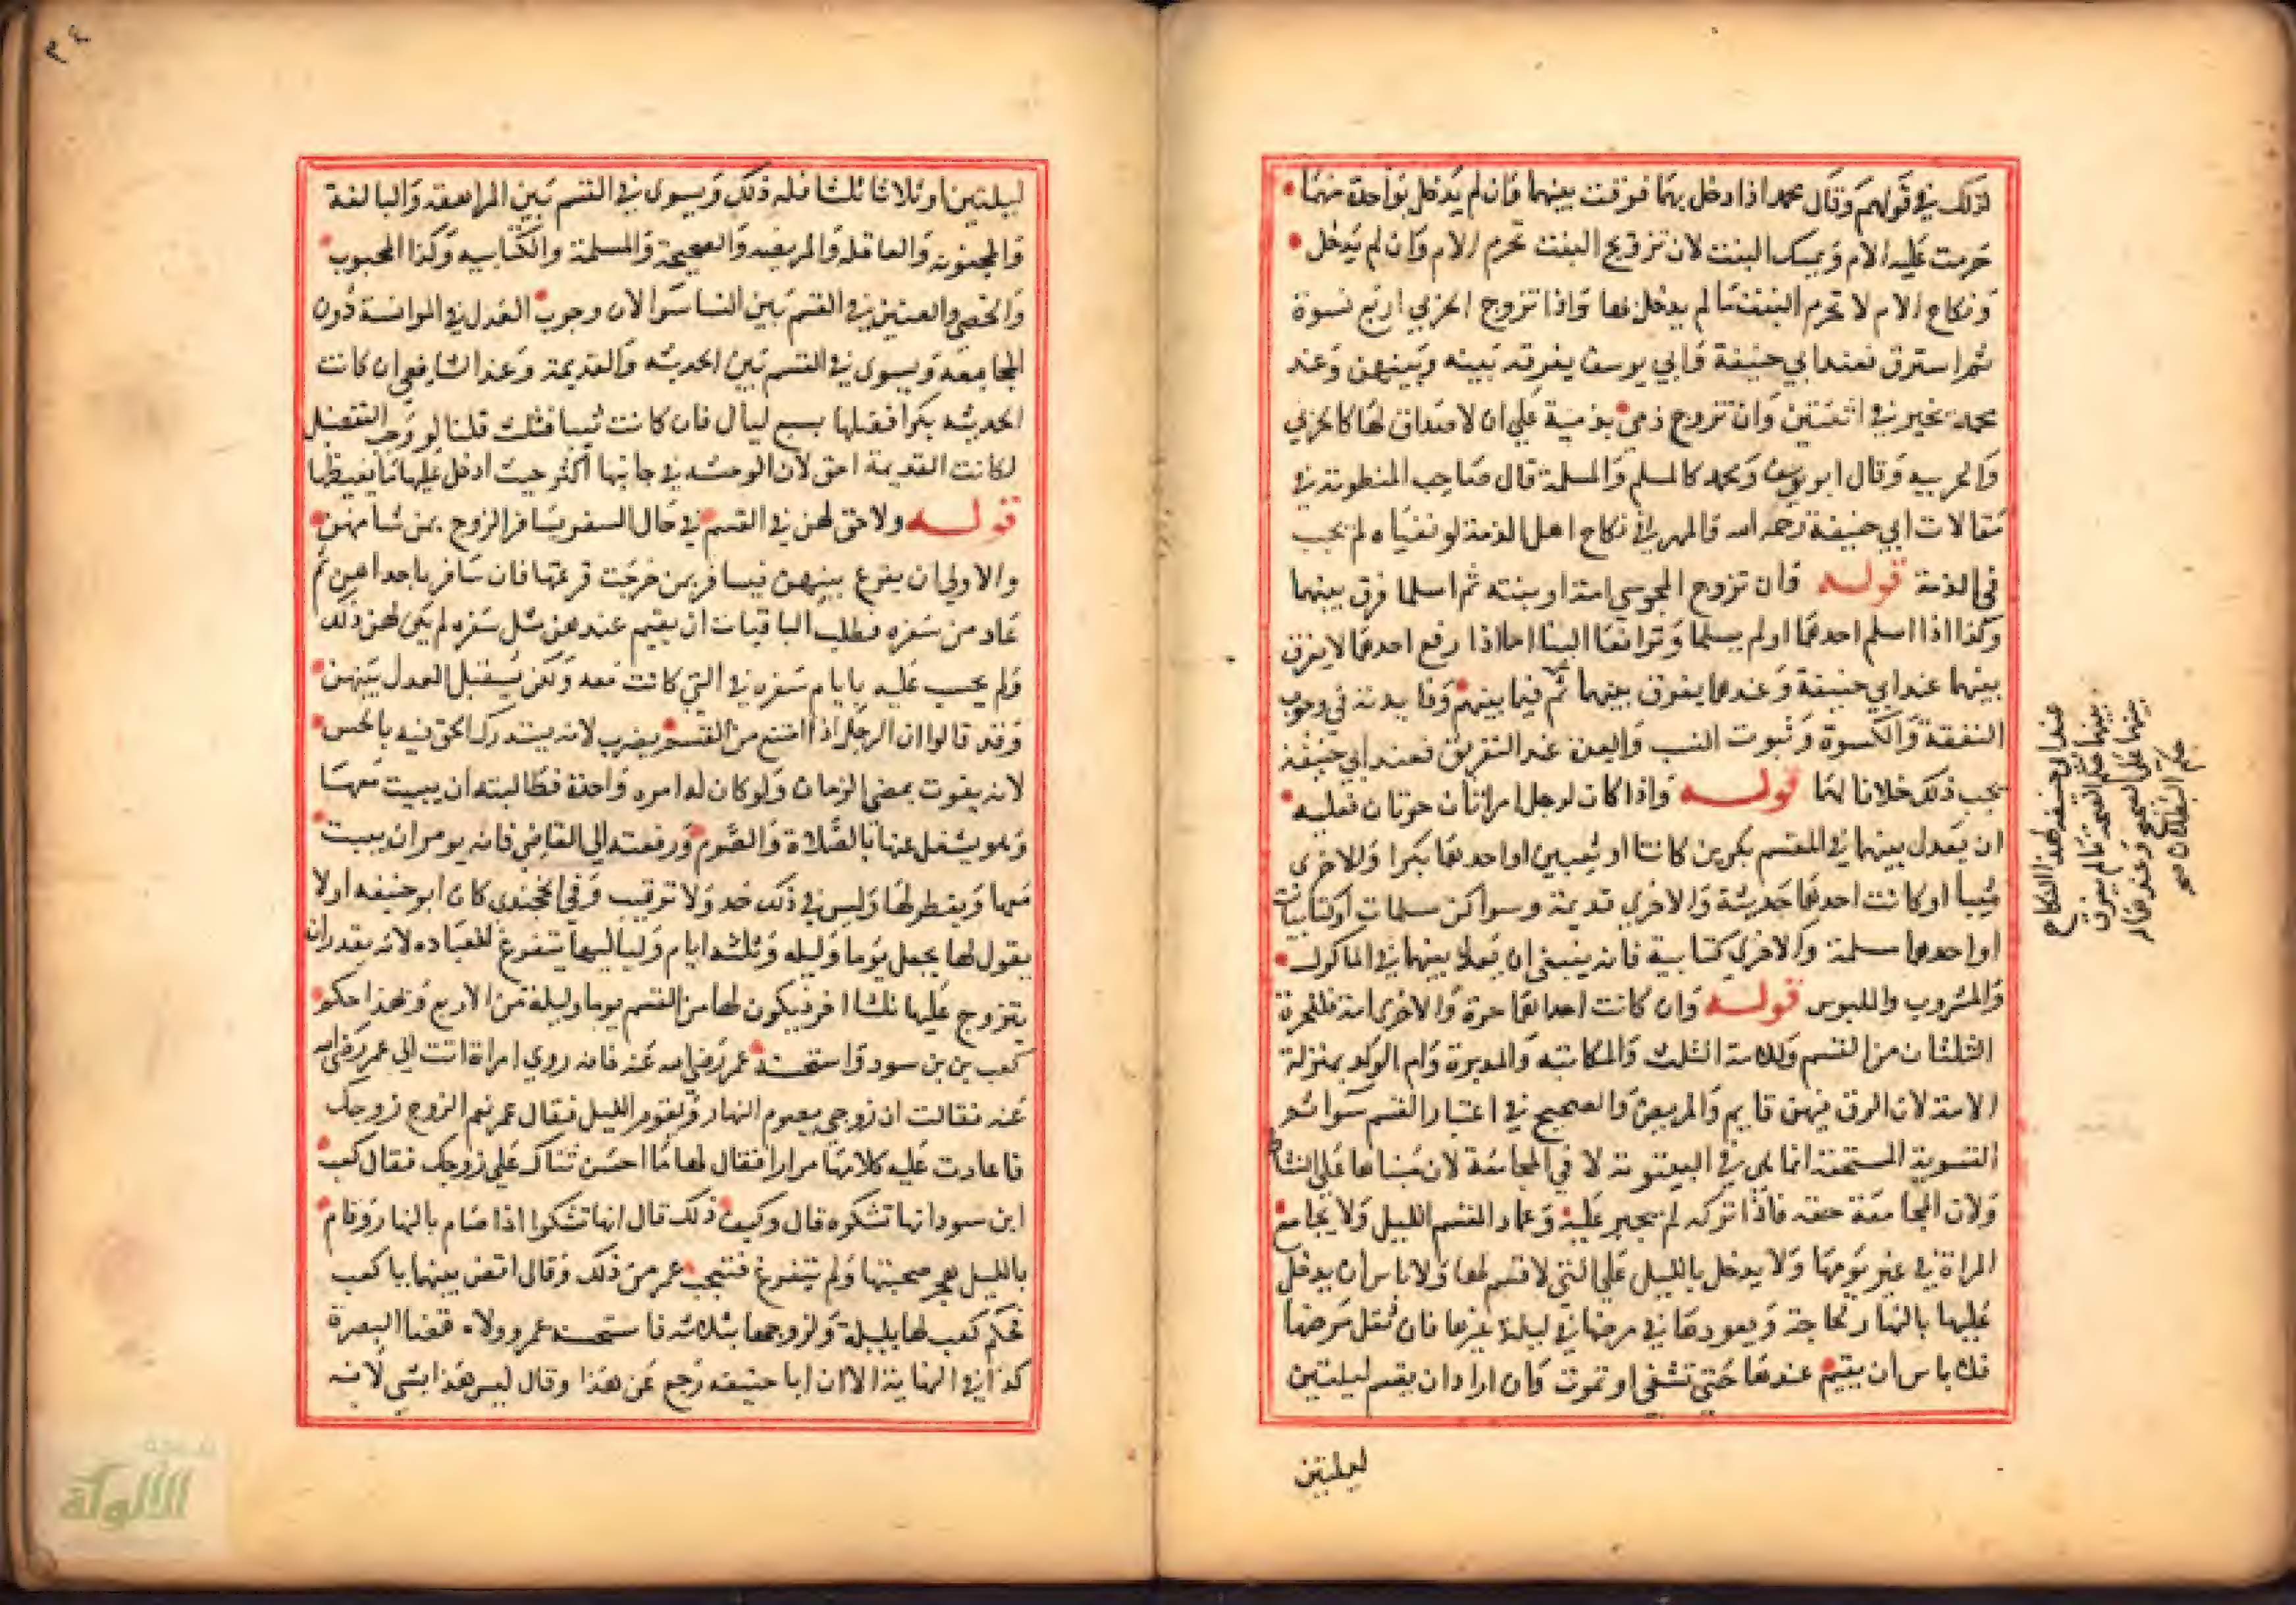 كذلك في قولهم وقال محمد اذا دخل بهما فرقت بينهما وان لم يدخل بواحدة منهما
حرمت عليه الام ويمسك البنت لان تزويج البنت تحرم الام وان لم يدخل
ونكاح الام لا تحرم البنت ما لم يدخل بها واذا تزوج الحربي اربع نسوة
ثم استرق فعند ابي حنيفة وابي يوسف يفرقه بينه وبينهن وعند
محمد يخير في اثنتين وان تزوج ذمي بذمية علي ان لا صداق لها كالحربي
والحربيه وقال ابو يوسف ومحمد كالمسلم والمسلمة قال صاحب المنظومة في
مقالات ابي حنيفة رحمه الله والمهر في نكاح اهل الذمة لو نفياه لم يجب
في الذمة قوله فان تزوج المجوسي امته او بنته ثم اسلما فرق بينهما
وكذا اذا اسلم احدهما او لم يسلما وترافعا الينا اما اذا رفع احدهما لا يفرق
بينهما عند ابي حنيفة وعندهما يفرق بينهما ثم فيما بينهم وفايدته في وجوب
النفقة والكسوة وثبوت النسب والعدة عند التفريق فعند ابي حنيفة
يجب ذلك خلافا لهما قوله واذا كان لرجل امراتان حرتان فعليه
ان يعدل بينهما في القسم بكرين كانتا او ثيبين او احدهما بكرا والاخري
ثيبا او كانت احدهما حديثة والاخري قديمة وسوا كن مسلمات او كتابيات
او احدهما مسلمة والاخري كتابية فانه ينبغي ان يعدل بينهما في الماكول
والمشروب والملبوس قوله وان كانت احداهما حرة والاخري امة فللحرة
الثلثان من القسم وللامة الثلث والمكاتبه والمدبرة وام الولد بمنزلة
الامة لان الرق فيهن قايم والمريض والصحيح في اعتبار القسم سوا ثم
التسوية المستحقة انما هي في البيتوتة لا في المجامعة لان مبناها علي النشاط
ولان المجامعة حقه فاذا تركه لم يجبر عليه وعماد القسم الليل ولا يجامع
المراة في غير يومها ولا يدخل بالليل علي التي لا قسم لها ولا باس ان يدخل
عليها بالنهار لحاجة ويعودها في مرضها في ليلة غيرها فان ثقل مرضها
فلا باس ان يقيم عندها حتي تشفي او تموت وان اراد ان يقسم ليلتين
ليلتين
عند ابي حنيفة لهذا النكاح
بينهما حكم الصحة ما لم يفرق
بينهما علي الصحيح وعندهما له
حكم البطلان صح
ليلتين او ثلاثا ثلثا فله ذلك ويسوي في القسم بين المراهقه والبالغة
والمجنونه والعاقله والمريضه والصحيحة والمسلمة والكتابيه وكذا المجبوب
والخصي والعنين في القسم بين النسا سوا لان وجوب العدل في الموانسة دون
المجامعة ويسوي في القسم بين الحديثه والقديمة وعند الشافعي ان كانت
الحديثه بكرا فضلها بسبع ليال فان كانت ثيبا فثلث قلنا لو وجب التفضيل
لكانت القديمة احق لان الوحشه في جانبها اكثر حيث ادخل عليها ما يغيظها
قوله ولا حق لهن في القسم في حال السفر يسافر الزوج بمن شا منهن
والاولي ان يقرع بينهن فيسافر بمن خرجت قرعتها فان سافر باحداهن ثم
عاد من سفره فطلب الباقيات ان يقيم عندهن مثل سفره لم يكن لهن ذلك
ولم يحسب عليه بايام سفره في التي كانت معه ولكن يستقبل العدل بينهن
وقد قالوا ان الرجل اذا امتنع من القسم يضرب لانه يستدرك الحق فيه بالحبس
لانه يفوت بمضي الزمان ولو كان له امره واحدة فطالبته ان يبيت معها
وهو يشغل عنها بالصلاة والصوم ورفعته الي القاضي فانه يومر ان يبيت
معها ويفطر لها وليس في ذلك حد ولا توقيت وفي الخجندي كان ابو حنيفه اولا
يقول لها يجعل يوما وليله وثلثه ايام ولياليها يتفرغ للعباده لانه يقدر ان
يتزوج عليها ثلثا اخر فيكون لها من القسم يوما وليلة من الاربع وبهذا حكم
كعب بن بن سور واستحسنه عمر رضي الله عنه فانه روي امراة اتت الي عمر رضي الله
عنه فقالت ان زوجي يصوم النهار ويقوم الليل فقال عمر نعم الزوج زوجك
فاعادت عليه كلامها مرارا فقال لها ما احسن ثناك علي زوجك فقال كعب
ابن سور انها تشكوه قال وكيف ذلك قال انها تشكوا اذا صام بالنهار وقام
بالليل هجر صحبتها ولم يتفرغ فتعجب عمر من ذلك وقال اقض بينهما يا كعب
فحكم كعب لها بليلة ولزوجها بثلاثه فاستحسنه عمر وولاه قضا البصرة
كذا في النهاية الا ان ابا حنيفه رجع عن هذا وقال ليس هذا بشي لانه
الألوكة